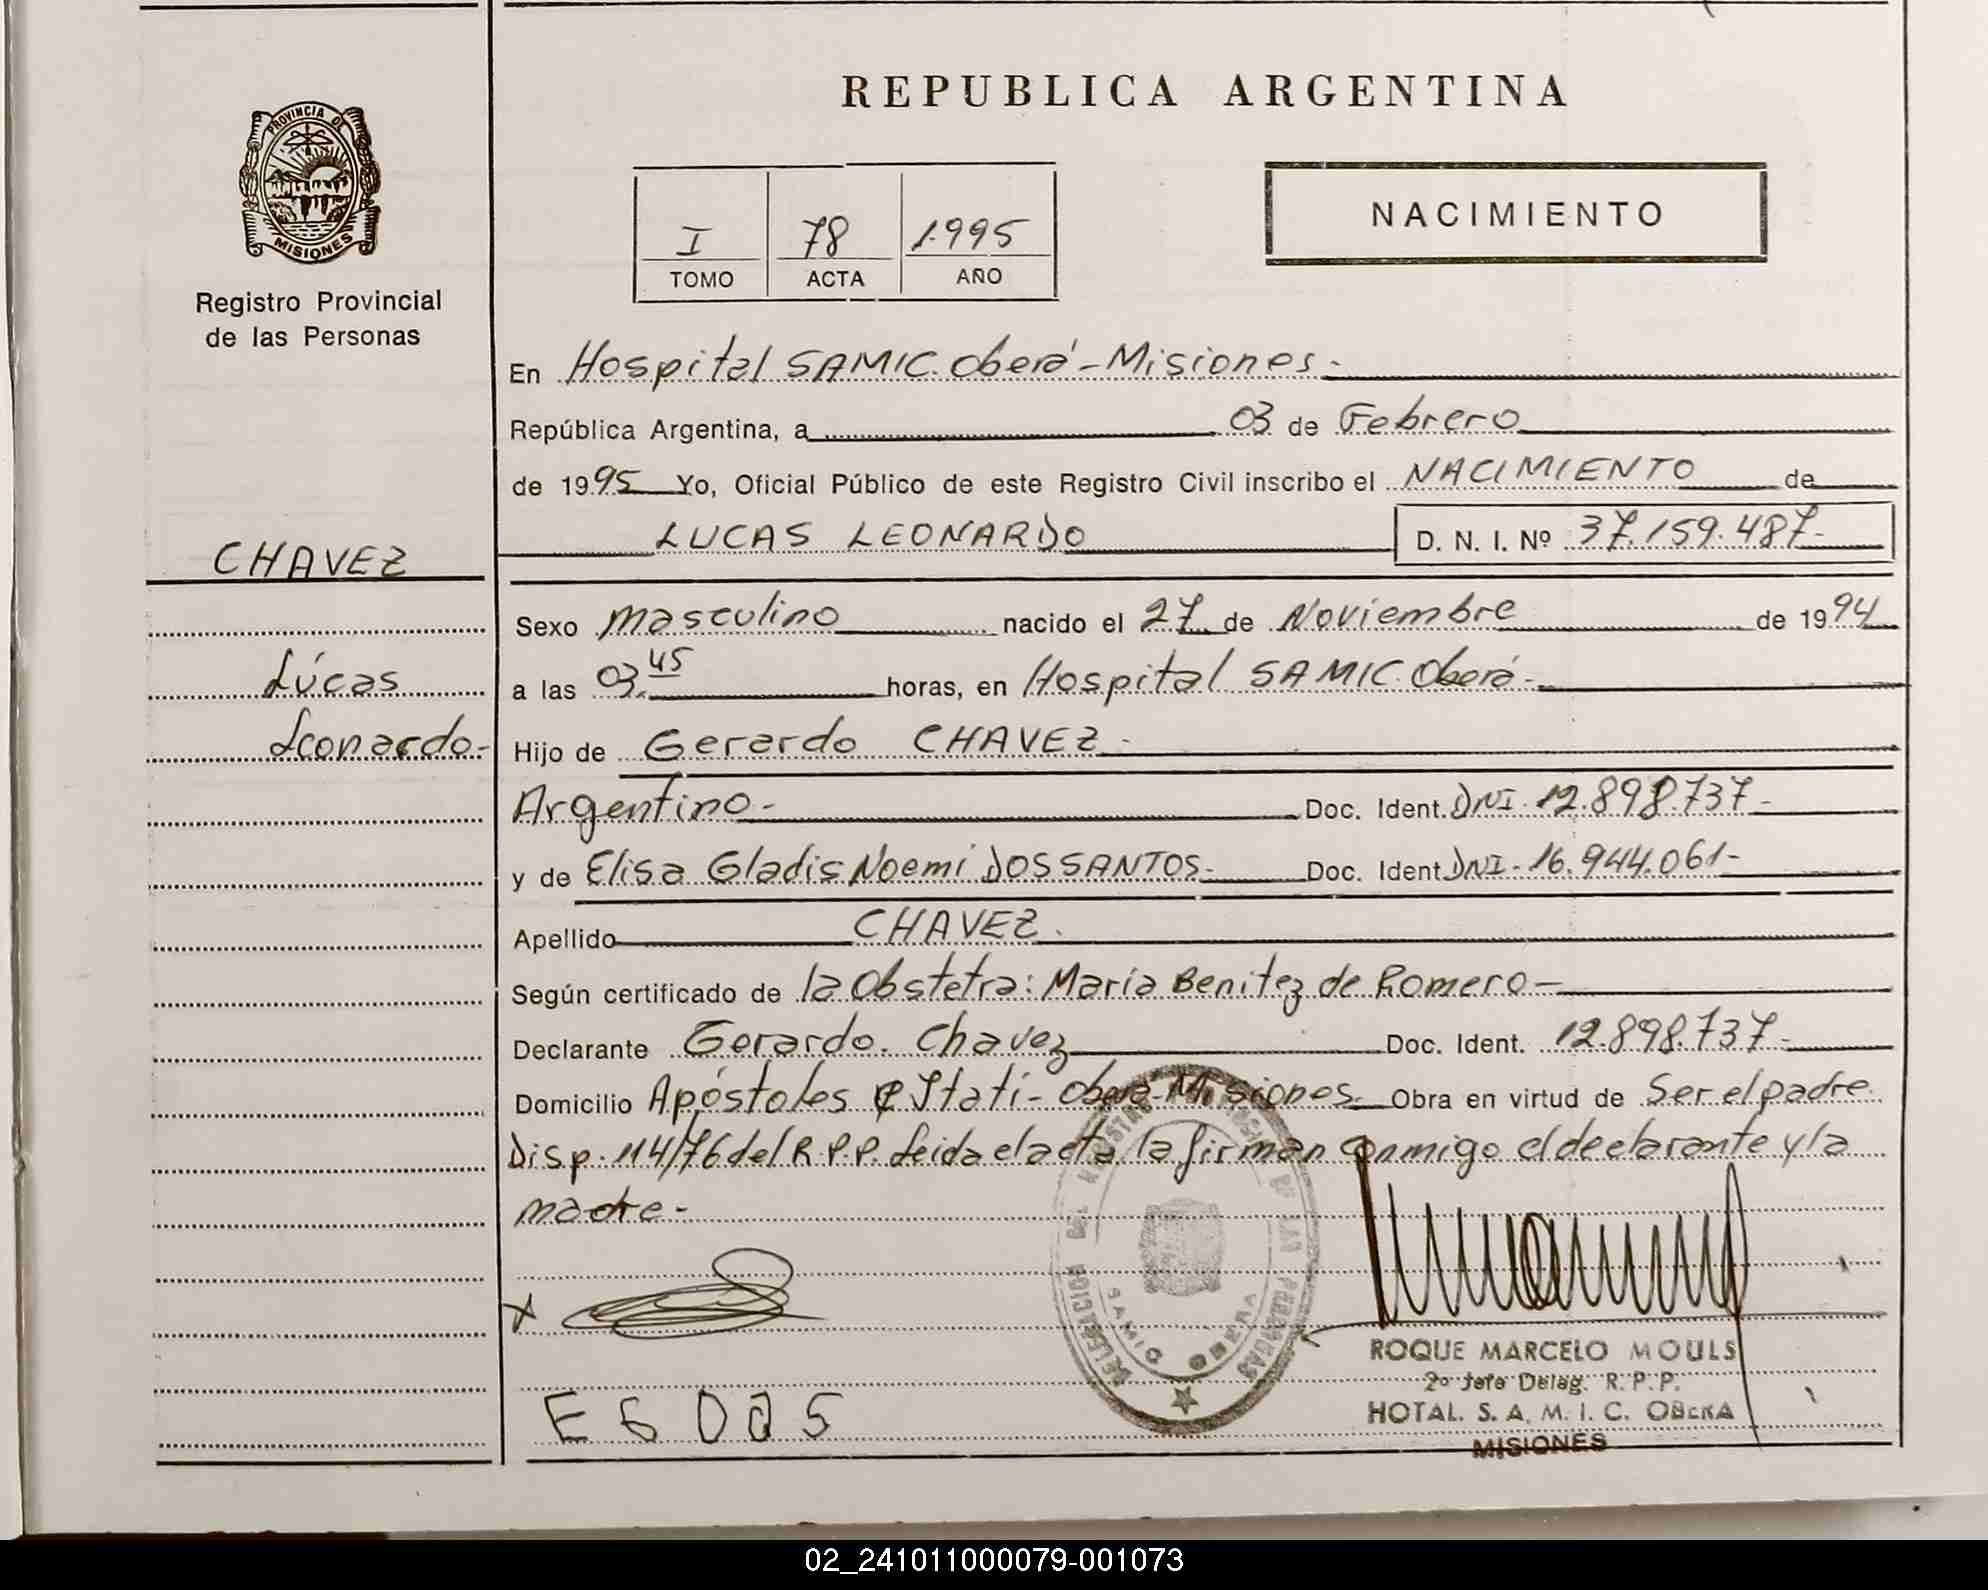 REPUBLICA ARGENTINA
PROVINCIA DE
MISIONES
Registro Provincial
de las Personas
I 78 1995
TOMO ACTA AÑO
NACIMIENTO
En Hospital SAMIC. Oberá - Misiones.-
República Argentina, a 03 de Febrero
de 1995 Yo, Oficial Público de este Registro Civil inscribo el NACIMIENTO de
LUCAS LEONARDO D. N. I. Nº 37.159.487-
CHAVEZ
Lúcas
Leonardo.-
Sexo Masculino nacido el 27 de Noviembre de 1994
a las 03.45 horas, en Hospital SAMIC. Oberá.-
Hijo de Gerardo CHAVEZ -
Argentino.- Doc. Ident. DNI. 12.898.737-
y de Elisa Gladis Noemí DOS SANTOS.- Doc. Ident. DNI- 16.944.061-
Apellido CHAVEZ.
Según certificado de la Obstetra: María Benitez de Romero-
Declarante Gerardo. Chavez Doc. Ident. 12.898.737-
Domicilio Apóstoles e Itatí - Oberá - Misiones. Obra en virtud de Ser el padre.
Disp. 114/76 del R.P.P. Leida el acta, la firman conmigo el declarante y la
madre.-
DELEGACION DEL REGISTRO PROVINCIAL DE LAS PERSONAS
SAMIC OBERA
ROQUE MARCELO MOULS
2º Jefe Deleg. R. P. P.
HOTAL. S. A. M. I. C. OBERA
MISIONES
02_241011000079-001073